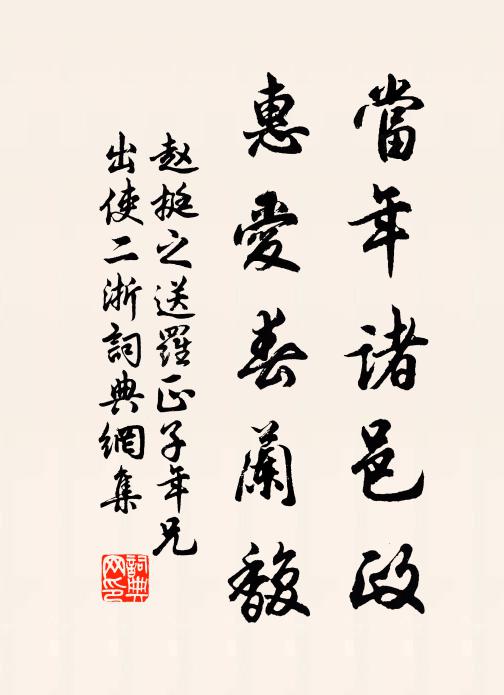 當年諸邑政
惠愛春蘭馥
赵挺之送羅正子年兄
出使二浙詞典網集
詞典网印